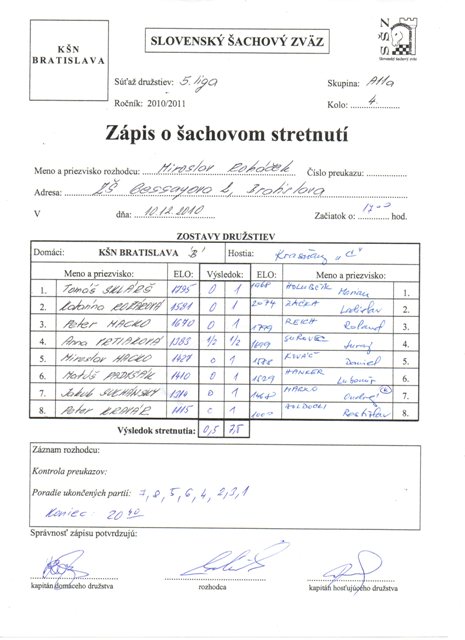 KŠN
BRATISLAVA
SLOVENSKÝ ŠACHOVÝ ZVÄZ
Slovenský šachový zväz
Súťaž družstiev: 5. liga
Skupina: A11a
Ročník: 2010/2011
Kolo: 4.
Zápis o šachovom stretnutí
Meno a priezvisko rozhodcu: Miroslav Roháček Číslo preukazu:
Adresa: ZŠ 2, Bratislava
V dňa: 10.12.2010 Začiatok o: 17 00 hod.
ZOSTAVY DRUŽSTIEV
Domáci: KŠN BRATISLAVA 'B' Hostia: Krasňany "C"
Meno a priezvisko: ELO: Výsledok: ELO: Meno a priezvisko:
1. Tomáš SKLÁRŠ 1795 0 1 HOLUBČÍK Marian 1.
2. Katarína 1581 0 1 2074 Ladislav 2.
3. Peter MACKO 1670 0 1 1779 REICH Roland 3.
4. Anna KETIAKOVÁ 1388 1/2 1/2 1699 Juraj 4.
5. Miroslav MACKO 1427 0 1 1578 KVAČ Daniel 5.
6. Matúš 1410 0 1 1529 HANKER Ľubomír 6.
7. Jakub SUCHÁNSKY 1310 0 1 MARKO Ondrej 7.
8. Peter 0 1 1000 Rastislav 8.
Výsledok stretnutia: 0,5 7,5
Záznam rozhodcu:
Kontrola preukazov:
Poradie ukončených partií: 7, 8, 5, 6, 4, 2, 3, 1
Koniec: 20 40
Správnosť zápisu potvrdzujú:
kapitán domáceho družstva rozhodca kapitán hosťujúceho družstva